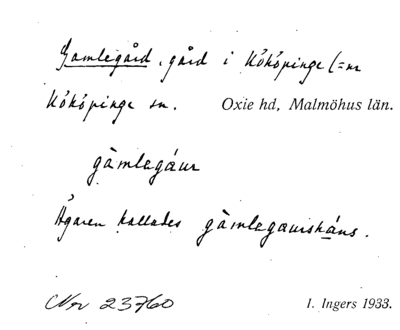 Gamlegård, gård i Kököpinge (= nr
Kököpinge sn. Oxie hd, Malmöhus län.
gàmlagáur
Ägaren kallades gàmlagaurshàns.
Nr 23760
I. Ingers 1933.